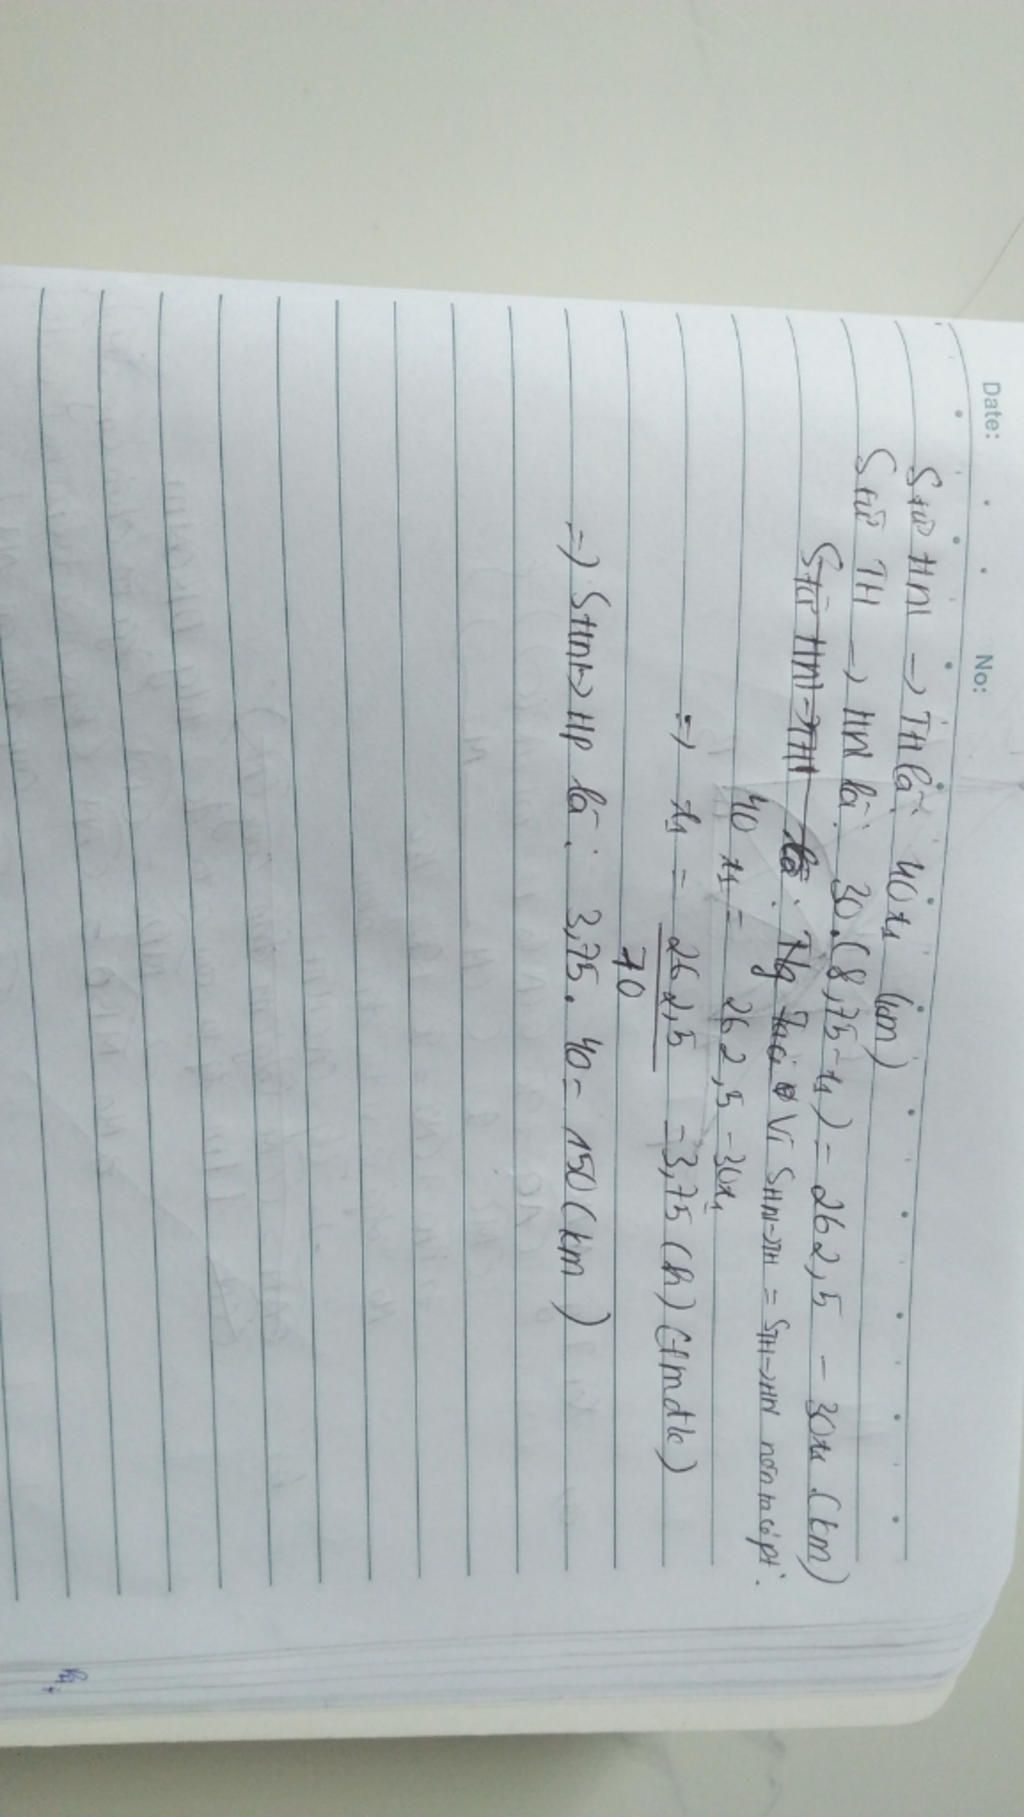 Date: No:
Stừ HN => TH là: 40x₁ (km)
Stừ TH => HN là: 30.(8,75-x₁) = 262,5 - 30x₁ (km)
Vì SHN->TH = STH->HN nên ta có pt:
40x₁ = 262,5 - 30x₁
=> x₁ = 262,5/70 = 3,75 (h) (tmdk)
=> SHN->HP là: 3,75. 40 = 150 (km)